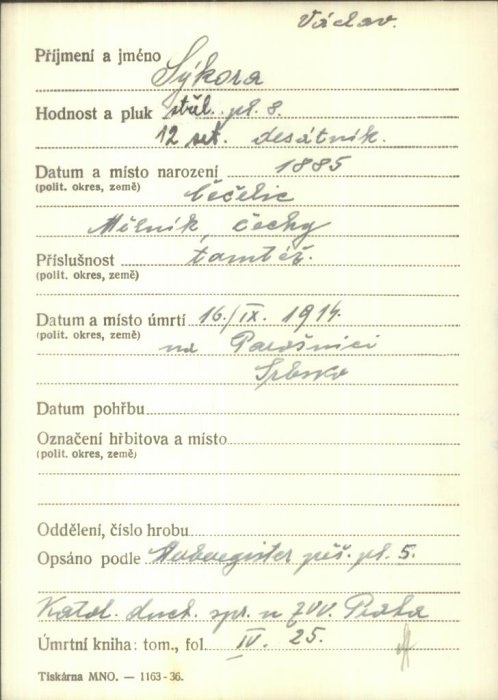 Václav.
Příjmení a jméno Sýkora
Hodnost a pluk střl. pl. 8.
12 set. desátník.
Datum a místo narození 1885
(polit. okres, země) Čečelic
Mělník, Čechy
Příslušnost tamtéž.
(polit. okres, země)
Datum a místo úmrtí 16./IX. 1914.
(polit. okres, země) na Parašnici
Srbsko
Datum pohřbu
Označení hřbitova a místo
(polit. okres, země)
Oddělení, číslo hrobu
Opsáno podle pěš. pl. 5.
Katol. duch. spr. u ZVV. Praha
Úmrtní kniha: tom., fol. IV. 25.
Tiskárna MNO. — 1163-36.